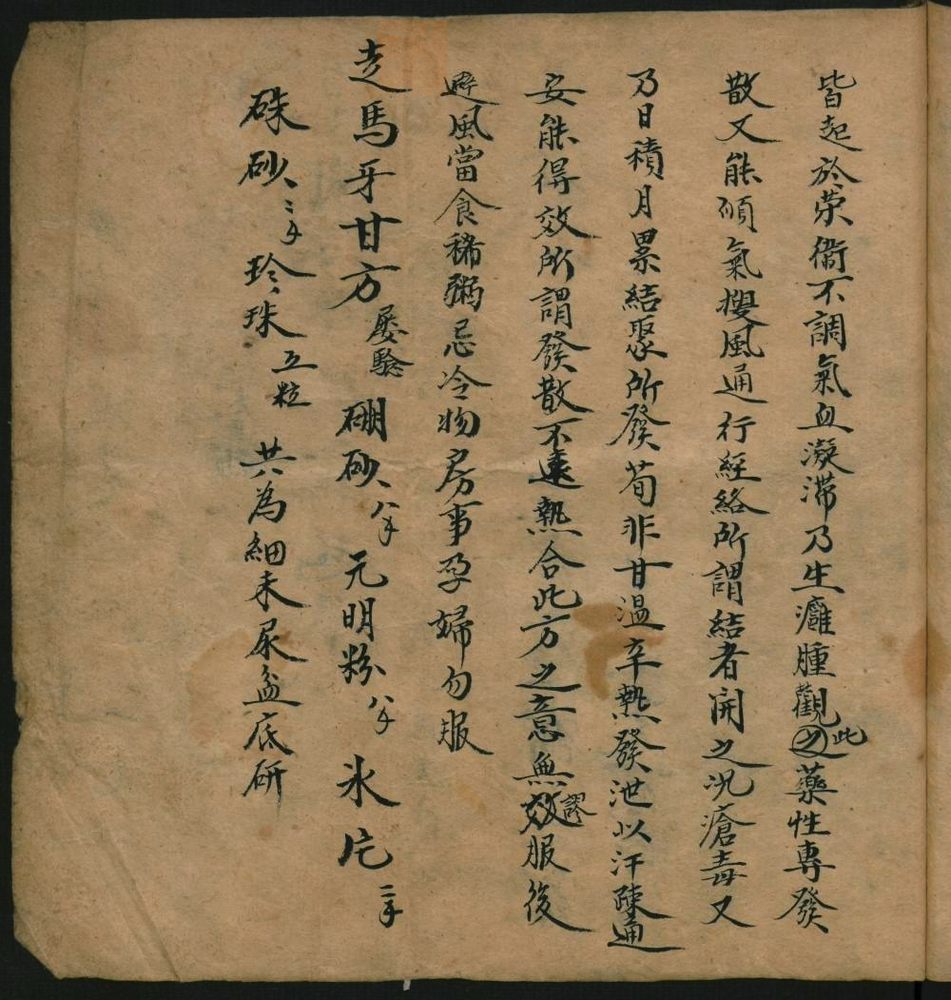 皆起於荣衛不調氣血凝滞乃生癰腫觀之此藥性專發
散又能順氣搜風通行經絡所謂結者開之况瘡毒又
乃日積月累結聚所發苟非甘温辛熱發泄以汗疎通
安能得效所謂發散不遠熱合此方之意無效謬服後
避風當食稀粥忌冷物房事孕婦勿服
走馬牙甘方屡驗 硼砂八分 元明粉八分 氷片二分
硃砂三分 珍珠五粒 共為細末尿盆底研